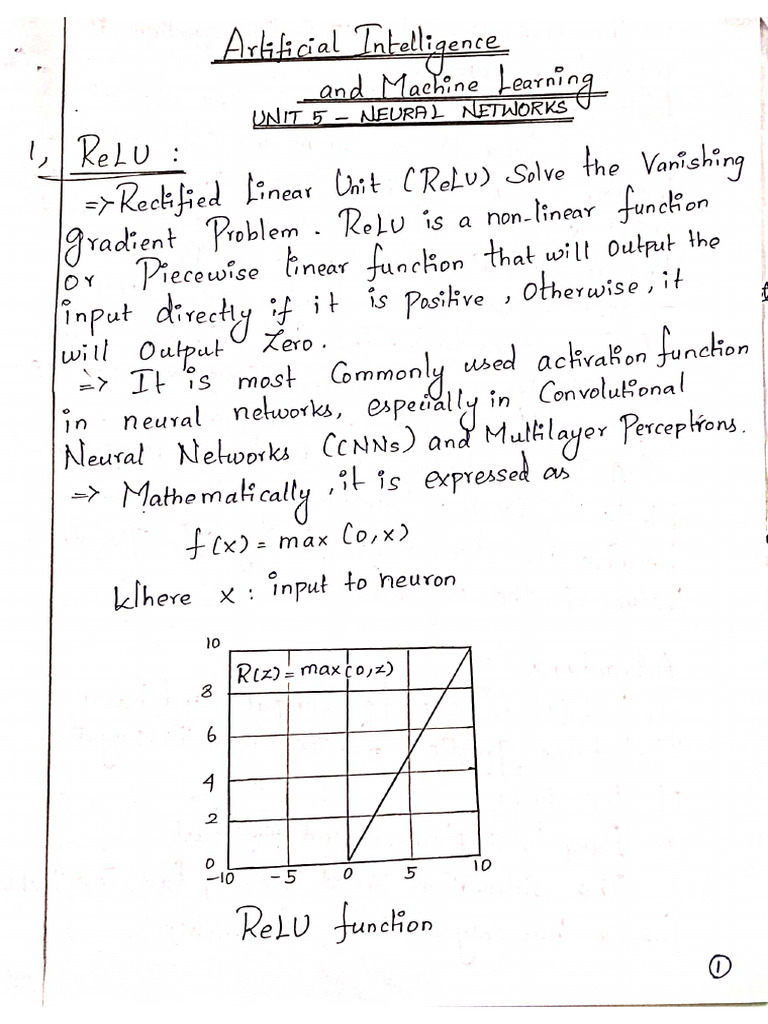 Artificial Intelligence
and Machine Learning
UNIT 5 - NEURAL NETWORKS
1, ReLU :
=> Rectified Linear Unit (ReLU) Solve the Vanishing
gradient Problem. ReLU is a non-linear function
or Piecewise linear function that will output the
input directly if it is positive, otherwise, it
will output Zero.
=> It is most commonly used activation function
in neural networks, especially in Convolutional
Neural Networks (CNNs) and Multilayer Perceptrons.
=> Mathematically, it is expressed as
f(x) = max (0,x)
Where x : input to neuron
10
R(z) = max(0,z)
8
6
4
2
0
-10 -5 0 5 10
ReLU function
1